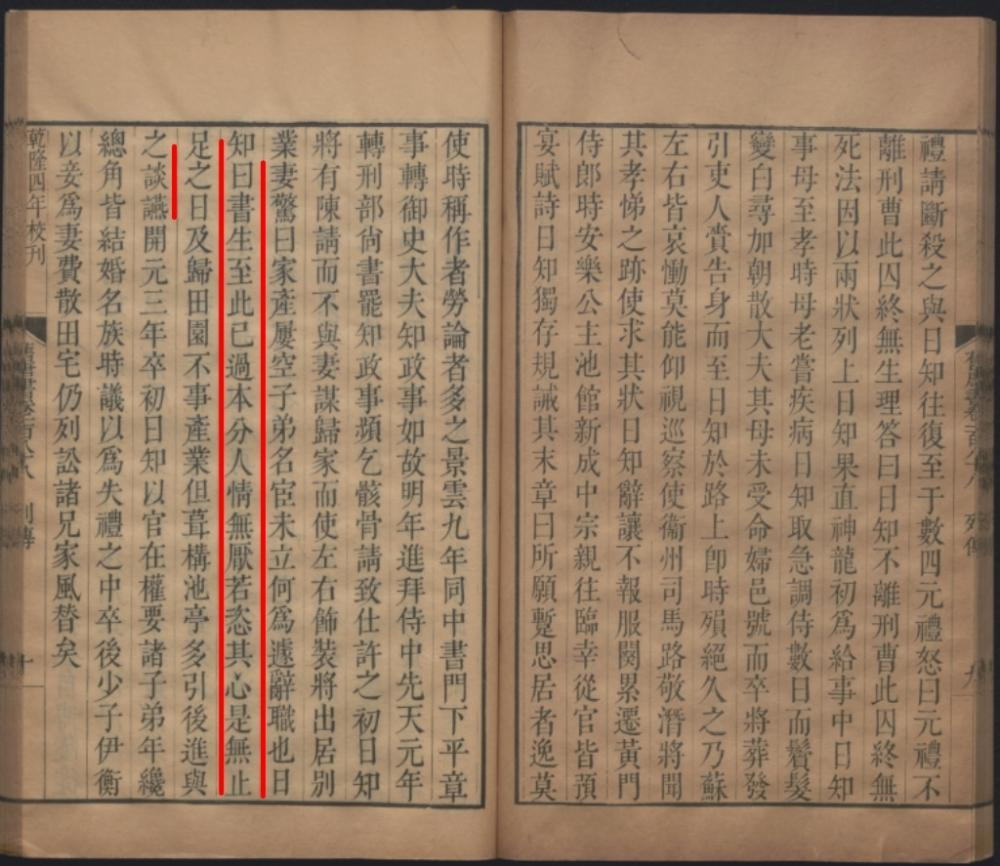 禮請斷殺之與日知往復至于數四元禮怒曰元禮不
離刑曹此囚終無生理答曰日知不離刑曹此囚終無
死法因以兩狀列上日知果直神龍初爲給事中日知
事母至孝時母老嘗疾病日知取急調侍數日而鬢髮
變白尋加朝散大夫其母未受命婦邑號而卒將葬發
引吏人賫告身而至日知於路上卽時殞絕久之乃蘇
左右皆哀慟莫能仰視巡察使衞州司馬路敬潛將聞
其孝悌之跡使求其狀日知辭讓不報服闋累遷黃門
侍郎時安樂公主池館新成中宗親往臨幸從官皆預
宴賦詩日知獨存規誡其末章曰所願蹔思居者逸莫
舊唐書卷一百八十八 列傳 九
使時稱作者勞論者多之景雲九年同中書門下平章
事轉御史大夫知政事如故明年進拜侍中先天元年
轉刑部尙書罷知政事頻乞骸骨請致仕許之初日知
將有陳請而不與妻謀歸家而使左右飾裝將出居別
業妻驚曰家產屢空子弟名宦未立何爲遽辭職也日
知曰書生至此已過本分人情無厭若恣其心是無止
足之日及歸田園不事產業但葺構池亭多引後進與
之談讌開元三年卒初日知以官在權要諸子弟年纔
總角皆結婚名族時議以爲失禮之中卒後少子伊衡
以妾爲妻費散田宅仍列訟諸兄家風替矣
乾隆四年校刊